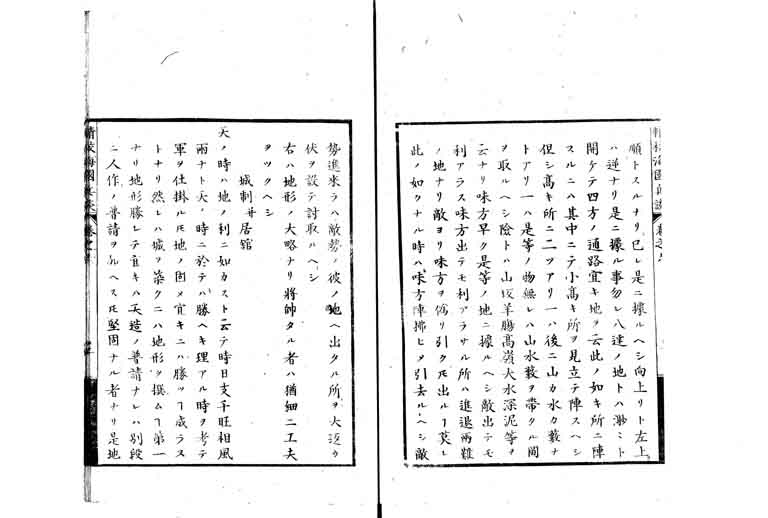 順トスルナリ已レ是ニ據ルヘシ向上リト左上
ハ逆ナリ是ニ據ル事勿レ八達ノ地トハ渺ミト
開ケテ四方ノ通路宜キ地ヲ云此ノ如キ所ニ陣
スルニハ其中ニテ小高キ所ヲ見立テ陣スヘシ
但シ高キ所ニ二ツアリ一ハ後ニ山カ水カ藪ナ
トアリ一ハ是等ノ物無レハ山水藪ヲ帯クル間
ヲ取ルヘシ險トハ山坂羊膓高嶺大水深泥等ヲ
云ナリ味方早ク是等ノ地ニ據ルヘシ敵出テモ
利アラス味方出テモ利アラサル所ハ進退兩難
ノ地ナリ敵ヨリ味方ヲ偽リ引クトモ出ルヿ莫レ
此ノ如クナル時ハ味方陣拂ヒメ引去ルヘシ敵
勢進来ラハ敵勢ノ彼ノ地ヘ出クル所ヲ大返ゥ
伏ヲ設テ討取ルヘシ
右ハ地形ノ大略ナリ將帥タル者ハ猶細ニ工夫
ヲツクヘシ
城制并居舘
天ノ時ハ地ノ利ニ如カスト云テ時日支干旺相風
雨ナト天ノ時ニ於テハ勝ヘキ理アル時ヲ考テ
軍ヲ仕掛ルトモ地ノ固メ宜キニハ勝ツヿ成ラス
トナリ然レハ城ヲ築クニハ地形ヲ撰ムヿ第一
ナリ地形勝レテ宜キハ天造ノ普請ナレハ別段
ニ人作ノ普請ヲルヘストモ堅固ナル者ナリ是地
精校海國兵談 卷之